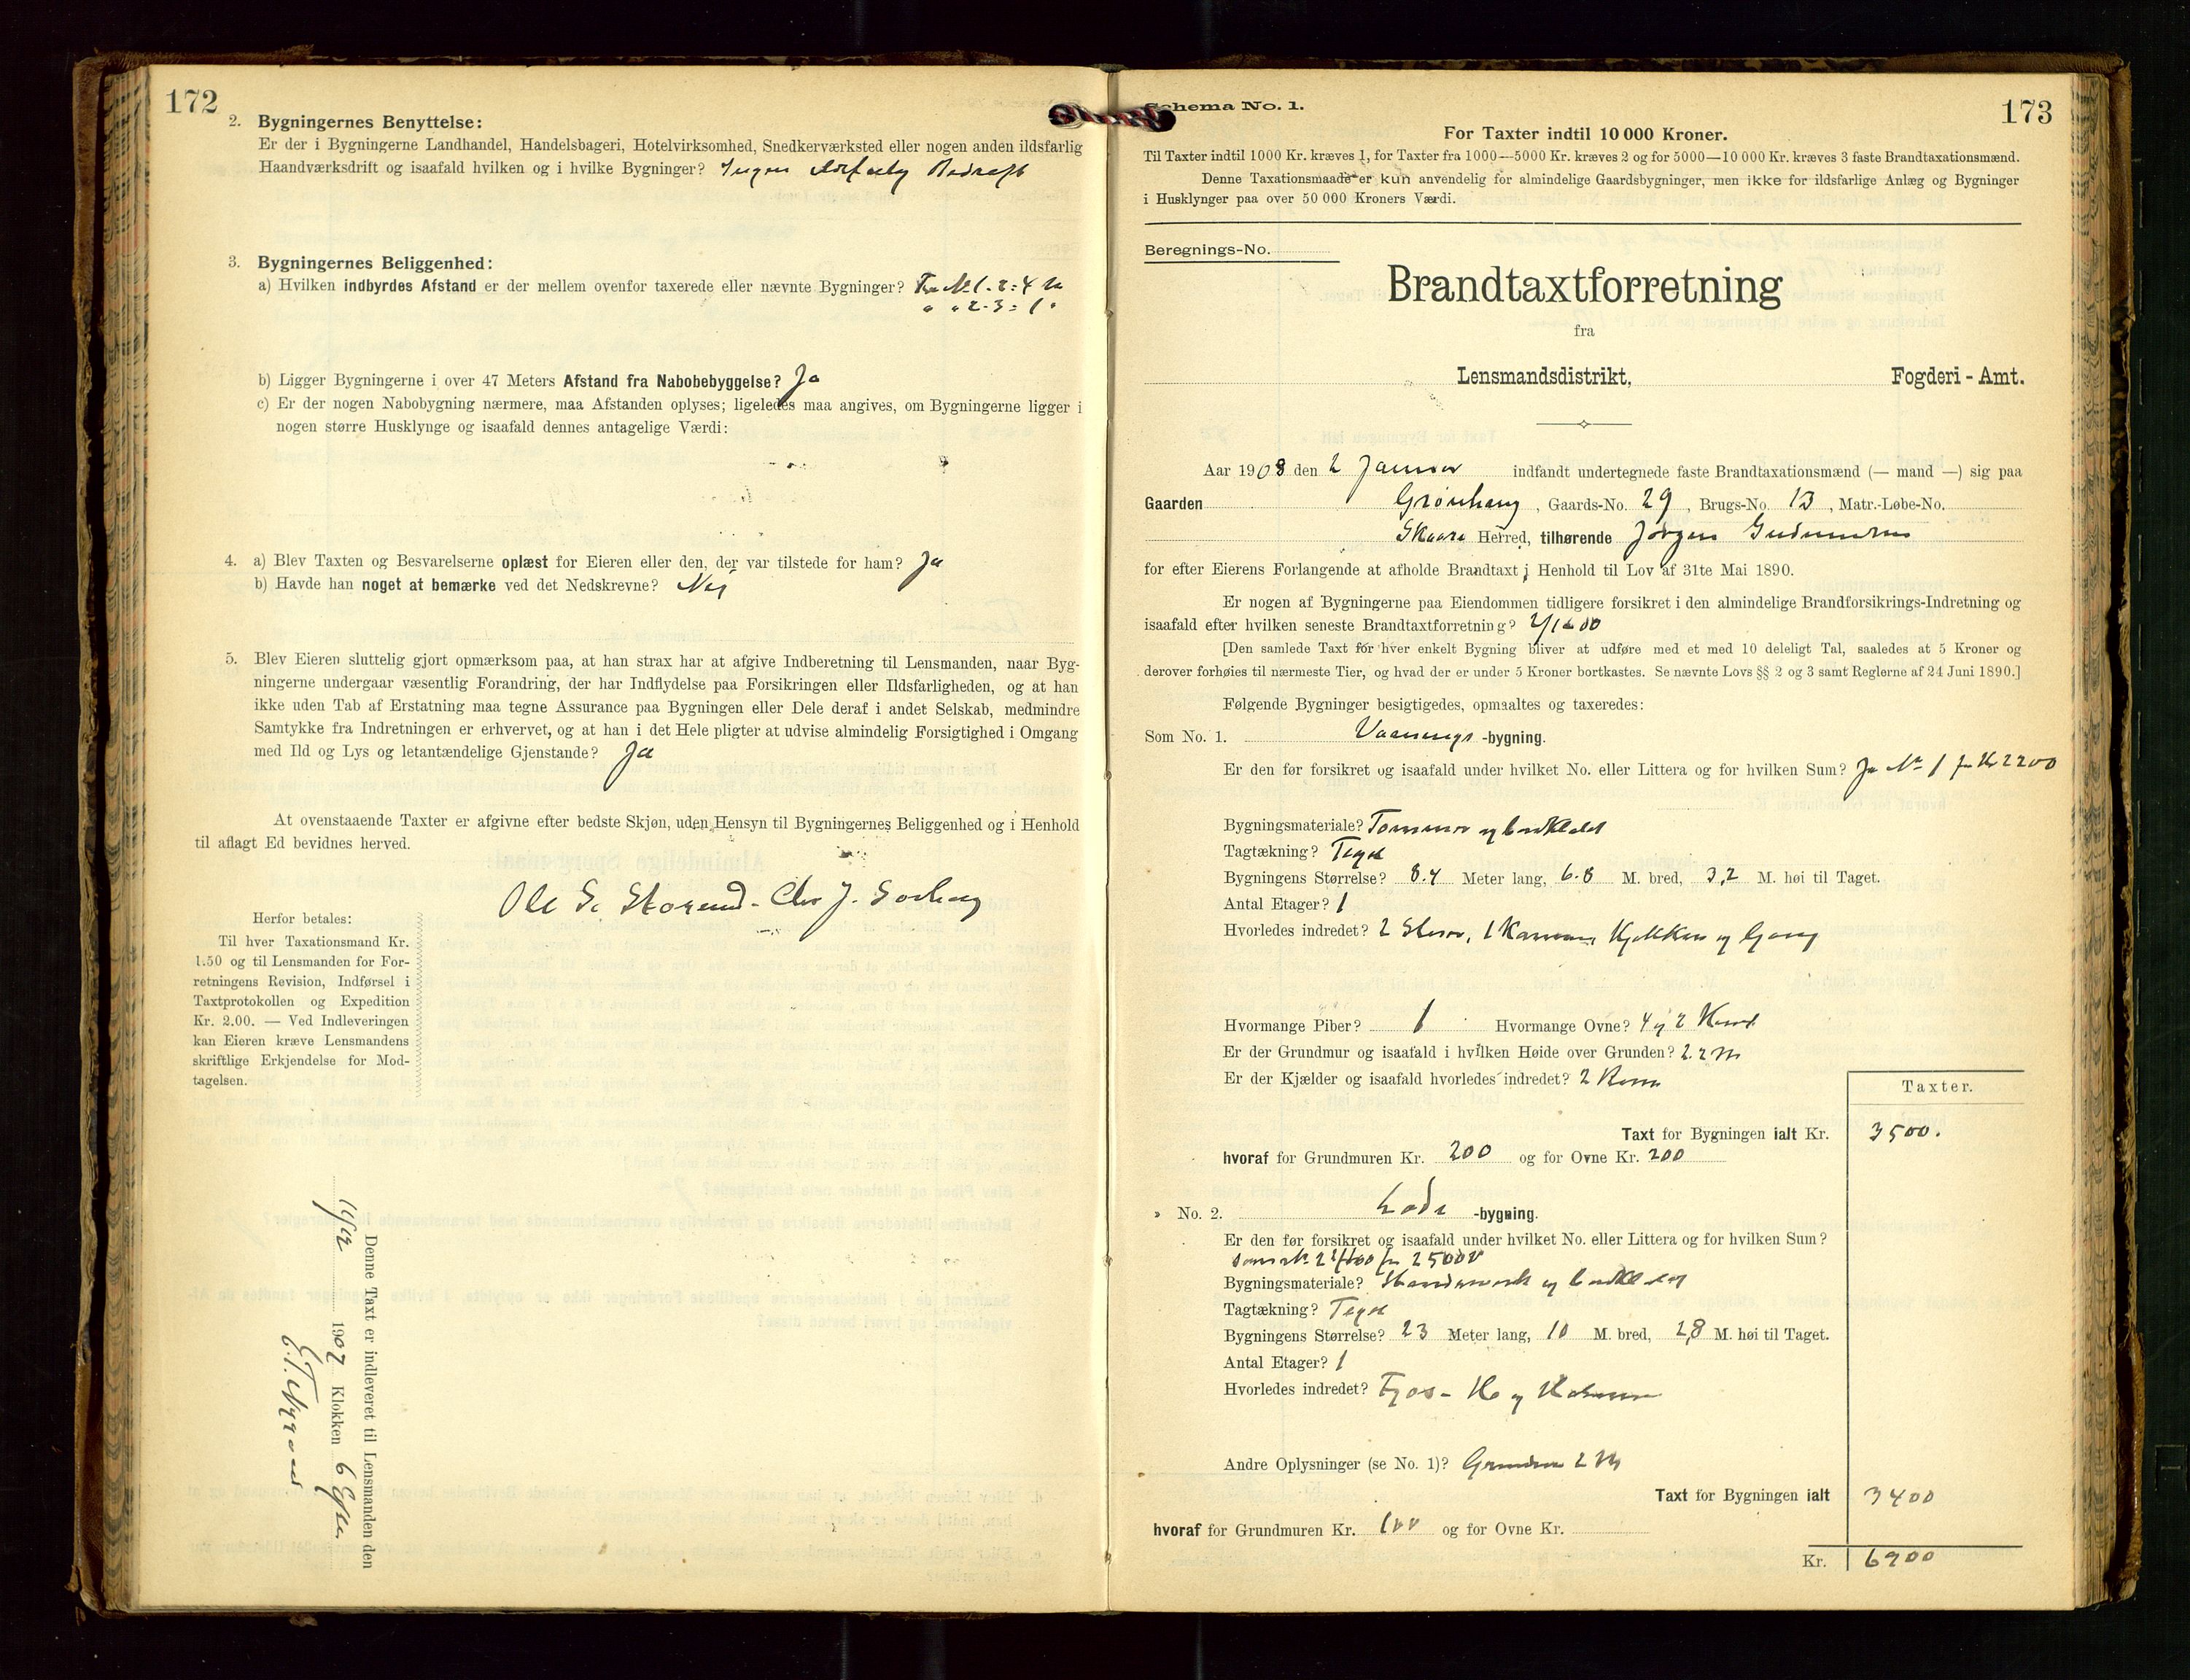 172
2. Bygningernes Benyttelse:
Er der i Bygningerne Landhandel, Handelsbageri, Hotelvirksomhed, Snedkerværksted eller nogen anden ildsfarlig
Haandværksdrift og isaafald hvilken og i hvilke Bygninger? Ingen ildsfarlig Bedrift
3. Bygningernes Beliggenhed:
a) Hvilken indbyrdes Afstand er der mellem ovenfor taxerede eller nævnte Bygninger? Fra No 1-2 = 4 m
" " 2-3 = 1 "
b) Ligger Bygningerne i over 47 Meters Afstand fra Nabobebyggelse? Ja
c) Er der nogen Nabobygning nærmere, maa Afstanden oplyses; ligeledes maa angives, om Bygningerne ligger i
nogen større Husklynge og isaafald dennes antagelige Værdi:
4. a) Blev Taxten og Besvarelserne oplæst for Eieren eller den, der var tilstede for ham? Ja
b) Havde han noget at bemærke ved det Nedskrevne? Nei
5. Blev Eieren sluttelig gjort opmærksom paa, at han strax har at afgive Indberetning til Lensmanden, naar Byg-
ningerne undergaar væsentlig Forandring, der har Indflydelse paa Forsikringen eller Ildsfarligheden, og at han
ikke uden Tab af Erstatning maa tegne Assurance paa Bygningen eller Dele deraf i andet Selskab, medmindre
Samtykke fra Indretningen er erhvervet, og at han i det Hele pligter at udvise almindelig Forsigtighed i Omgang
med Ild og Lys og letantændelige Gjenstande? Ja
At ovenstaaende Taxter er afgivne efter bedste Skjøn, uden Hensyn til Bygningernes Beliggenhed og i Henhold
til aflagt Ed bevidnes herved.
Ole S. Chr J.
Herfor betales:
Til hver Taxationsmand Kr.
1.50 og til Lensmanden for For-
retningens Revision, Indførsel i
Taxtprotokollen og Expedition
Kr. 2.00. — Ved Indleveringen
kan Eieren kræve Lensmandens
skriftlige Erkjendelse for Mod-
tagelsen.
Denne Taxt er indleveret til Lensmanden den
1907 Klokken 6 Efter.
173
Schema No. 1.
For Taxter indtil 10 000 Kroner.
Til Taxter indtil 1000 Kr. kræves 1, for Taxter fra 1000—5000 Kr. kræves 2 og for 5000—10 000 Kr. kræves 3 faste Brandtaxationsmænd.
Denne Taxationsmaade er kun anvendelig for almindelige Gaardsbygninger, men ikke for ildsfarlige Anlæg og Bygninger
i Husklynger paa over 50 000 Kroners Værdi.
Beregnings-No.
Brandtaxtforretning
fra
Lensmandsdistrikt, Fogderi - Amt.
Aar 1908 den 2 Januar indfandt undertegnede faste Brandtaxationsmænd (— mand —) sig paa
Gaarden Grønhaug, Gaards-No. 29, Brugs-No. 13, Matr.-Løbe-No.
Skaare Herred, tilhørende Jørgen Gudmundsen
for efter Eierens Forlangende at afholde Brandtaxt i Henhold til Lov af 31te Mai 1890.
Er nogen af Bygningerne paa Eiendommen tidligere forsikret i den almindelige Brandforsikrings-Indretning og
isaafald efter hvilken seneste Brandtaxtforretning?
[Den samlede Taxt for hver enkelt Bygning bliver at udføre med et med 10 deleligt Tal, saaledes at 5 Kroner og
derover forhøies til nærmeste Tier, og hvad der er under 5 Kroner bortkastes. Se nævnte Lovs §§ 2 og 3 samt Reglerne af 24 Juni 1890.]
Følgende Bygninger besigtigedes, opmaaltes og taxeredes:
Som No. 1. Vaanings-bygning.
Er den før forsikret og isaafald under hvilket No. eller Littera og for hvilken Sum? Ja No 1 for Kr 2200
Bygningsmateriale? Tømmer og bordklædt
Tagtækning? Tegl
Bygningens Størrelse? 8.4 Meter lang, 6.8 M. bred, 3,2 M. høi til Taget.
Antal Etager? 1
Hvorledes indredet? 2 Stuer, 1 Kammer, Kjøkken og Gang
Hvormange Piber? 1 Hvormange Ovne? 4 og 2 Komf.
Er der Grundmur og isaafald i hvilken Høide over Grunden? 2.2 m
Er der Kjælder og isaafald hvorledes indredet? 2 Rom
Taxter.
Taxt for Bygningen ialt Kr. 3500.
hvoraf for Grundmuren Kr. 200 og for Ovne Kr. 200
" No. 2. Lade-bygning.
Er den før forsikret og isaafald under hvilket No. eller Littera og for hvilken Sum?
Bygningsmateriale? Standerverk og bordklædt
Tagtækning? Tegl
Bygningens Størrelse? 23 Meter lang, 10 M. bred, 2,8 M. høi til Taget.
Antal Etager? 1
Hvorledes indredet? Fjøs- Hø og
Andre Oplysninger (se No. 1)? Grundmur 2 M
Taxt for Bygningen ialt 3400
hvoraf for Grundmuren Kr. 100 og for Ovne Kr.
Kr. 6900